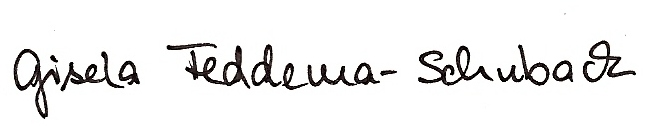 Gisela Feddema-Schuback